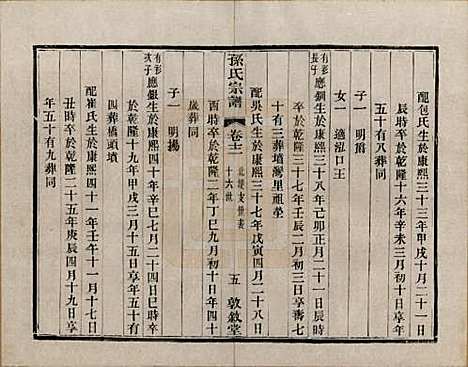 配包氏生於康熙三十三年甲戌十月二十一日
辰時卒於乾隆十六年辛未三月初十日享年
五十有八葬同
子一 明爵
女一 適泓口王
有彭長子 應銅生於康熙三十八年己卯正月二十一日辰時
卒於乾隆三十七年壬辰二月初三日享壽七
十有三葬墳灣里祖塋
配吳氏生於康熙三十七年戊寅四月二十八日
孫氏宗譜 卷十二 北堤支世表 十六世 五 敦敘堂
酉時卒於乾隆二年丁巳九月初四日享年四十
歲葬同
子一 明揚
有彭次子 應銀生於康熙四十年辛巳七月二十四日巳時卒
於乾隆十九年甲戌三月十五日享年五十有
四葬橋頭墳
配崔氏生於康熙四十一年壬午十一月十七日
丑時卒於乾隆二十五年庚辰四月十九日享
年五十有九葬同